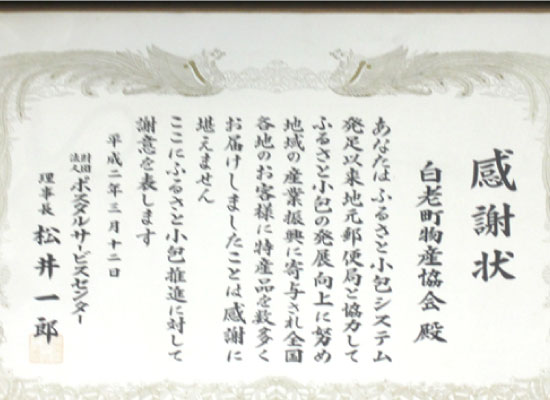 感謝状
白老町物産協会 殿
あなたは ふるさと小包システム
発足以来地元郵便局と協力して
ふるさと小包の発展向上に努め
地域の産業振興に寄与され全国
各地のお客様に特産品を数多く
お届けしましたことは感謝に
堪えません
ここにふるさと小包推進に対して
謝意を表します
平成二年三月十二日
財団法人 ポスタルサービスセンター
理事長 松井一郎